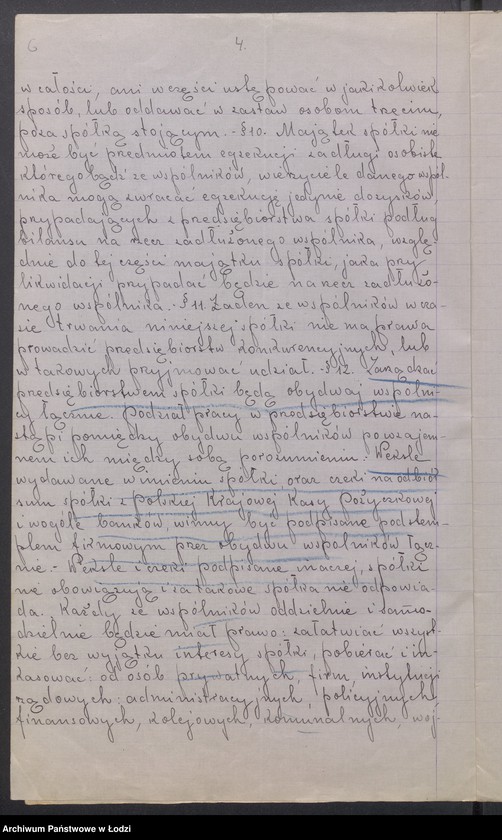 6 4.
w całości, ani w części ustępować w jakikolwiek
sposób, lub oddawać w zastaw osobom trzecim,
poza spółką stojącym. - § 10. Majątek spółki nie
może być przedmiotem egzekucji za długi osobiste
któregobądź ze wspólników, wierzyciele danego wspól-
nika mogą zwracać egzekucję jedynie do zysków,
przypadających z przedsiębiorstwa spółki podług
bilansu na rzecz zadłużonego wspólnika, wzglę-
dnie do tej części majątku spółki, jaka przy
likwidacji przypadać będzie na rzecz zadłużo-
nego wspólnika. - § 11. Żaden ze wspólników w cza-
sie trwania niniejszej spółki nie ma prawa
prowadzić przedsiębiorstw konkurencyjnych, lub
w takowych przyjmować udział. - § 12. Zarządzać
przedsiębiorstwem spółki będą obydwaj wspólni-
cy łącznie. Podział pracy w przedsiębiorstwie na-
stąpi pomiędzy obydwu wspólników po wzajem-
nem ich między sobą porozumieniu. Weksle
wydawane w imieniu spółki, oraz czeki na odbiór
sum spółki z Polskiej Krajowej Kasy Pożyczkowej
i wogóle banków, winny być podpisane pod stem-
plem firmowym przez obydwu wspólników łącz-
nie. - Weksle i czeki podpisane inaczej, spółki
nie obowiązują i za takowe spółka nie odpowia-
da. Każdy ze wspólników oddzielnie i samo-
dzielnie będzie miał prawo: załatwiać wszyst-
kie bez wyjątku interesy spółki, pobierać i in-
kasować: od osób prywatnych, firm, instytucji
rządowych: administracyjnych, policyjnych,
finansowych, kolejowych, komunalnych, woj-
Archiwum Państwowe w Łodzi